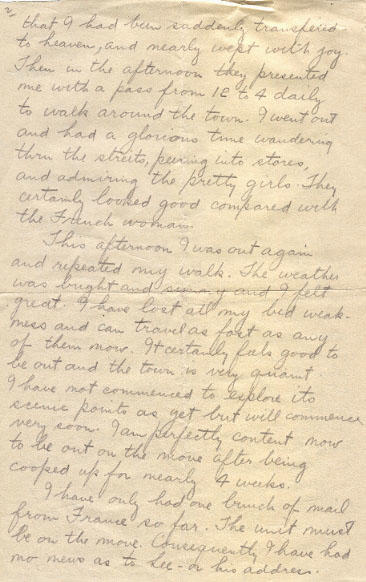 2/
that I had been suddenly transfered
to heaven, and nearly wept with joy.
Then in the afternoon they presented
me with a pass from 12 to 4 daily
to walk around the town. I went out
and had a glorious time wandering
thru the streets, peering into stores,
and admiring the pretty girls. They
certainly looked good compared with
the French woman.
This afternoon I was out again
and repeated my walk. The weather
was bright and sunny and I felt
great. I have lost all my bed weak-
ness and can travel as fast as any
of them now. It certainly feels good to
be out and the town is very quaint
I have not commenced to explore its
scenic points as yet but will commence
very soon. I am perfectly content now
to be out on the move after being
cooped up for nearly 4 weeks.
I have only had one bunch of mail
from France so far. The unit must
be on the move. Consequently I have had
no news as to Lee - or his address.